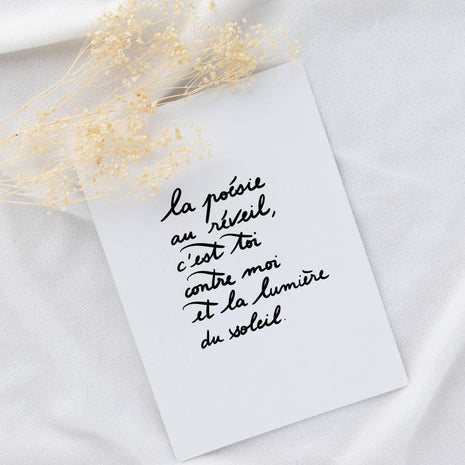 la poésie
au réveil,
c'est toi
contre moi
et la lumière
du soleil.